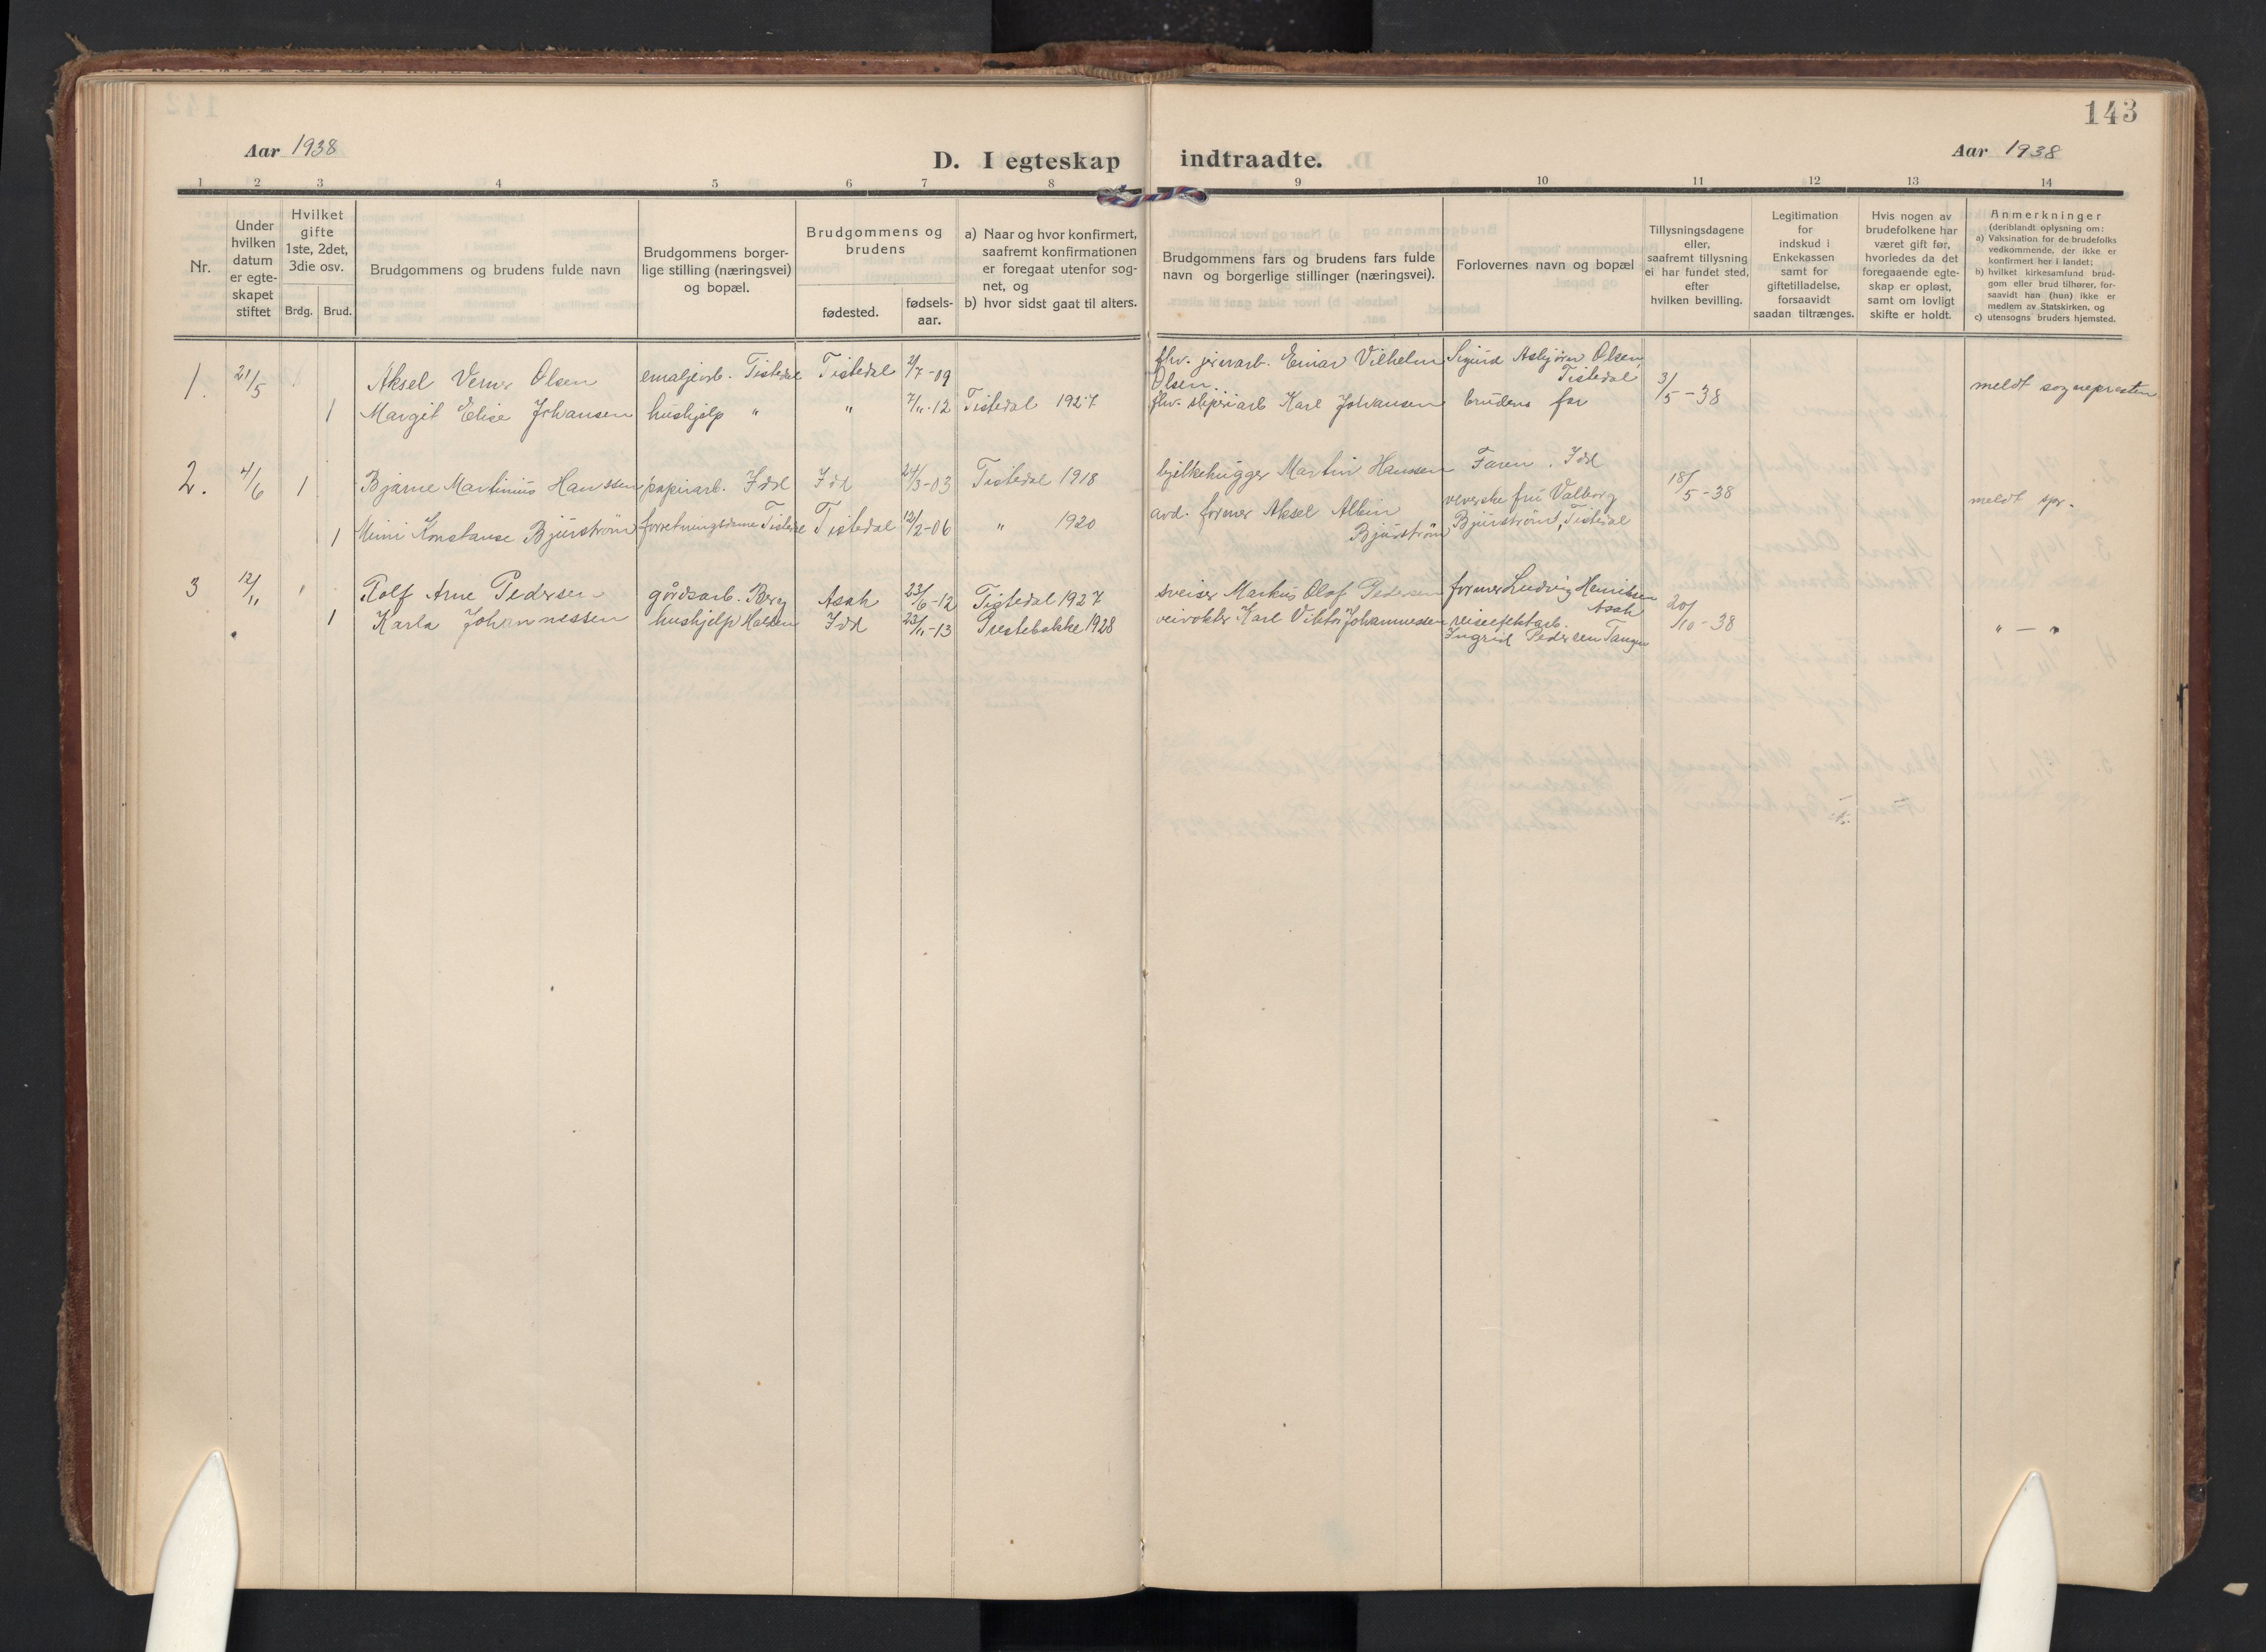 143
Aar 1938
D. I egteskap indtraadte.
Aar 1938
1 2 3 4 5 6 7 8 9 10 11 12 13 14
Nr.
Under
hvilken
datum
er egte-
skapet
stiftet
Hvilket
gifte
1ste, 2det,
3die osv.
Brdg. Brud.
Brudgommens og brudens fulde navn
Brudgommens borger-
lige stilling (næringsvei)
og bopæl.
Brudgommens og
brudens
fødested.
fødsels-
aar.
a) Naar og hvor konfirmert,
saafremt konfirmationen
er foregaat utenfor sog-
net, og
b) hvor sidst gaat til alters.
Brudgommens fars og brudens fars fulde
navn og borgerlige stillinger (næringsvei).
Forlovernes navn og bopæl
Tillysningsdagene
eller,
saafremt tillysning
ei har fundet sted,
efter
hvilken bevilling.
Legitimation
for
indskud i
Enkekassen
samt for
giftetilladelse,
forsaavidt
saadan tiltrænges.
Hvis nogen av
brudefolkene har
været gift før,
hvorledes da det
foregaaende egte-
skap er opløst,
samt om lovligt
skifte er holdt.
Anmerkninger
(deriblandt oplysning om:
a) Vaksination for de brudefolks
vedkommende, der ikke er
konfirmert her i landet;
b) hvilket kirkesamfund brud-
gom eller brud tilhører, for-
saavidt han (hun) ikke er
medlem av Statskirken, og
c) utensogns bruders hjemsted.
1. 21/5 1 Aksel Verner Olsen emaljearb. Tistedal Tistedal 2/7-09 fhv. jernarb. Einar Vilhelm Olsen Sigurd Asbjørn Olsen, Tistedal 3/5-38 meldt sognepresten
1 Margit Elise Johansen hushjelp " " 7/11-12 Tistedal 1927 fhv. sliperiarb Karl Johansen brudens far
2. 4/6 1 Bjarne Martinius Hanssen papirarb. Idd Idd 24/3-03 Tistedal 1918 bjelkehugger Martin Hanssen Faren, Idd 18/5-38 meldt spr.
1 Mimi Konstanse Bjurstrøm forretningsdame Tistedal Tistedal 12/2-06 " 1920 avd. former Aksel Albin Bjurstrøm veverske fru Valborg Bjurstrøm, Tistedal
3 12/11 1 Rolf Arne Pedersen gårdsarb. Berg Asak 23/6-12 Tistedal 1927 sveiser Markus Olaf Pedersen former Ludvig Henriksen Asak 20/10-38 " — "
1 Karla Johannessen hushjelp Halden Idd 22/11-13 Prestebakke 1928 veivokter Karl Viktor Johannessen reiseefektarb. Ingrid Pedersen Tangen